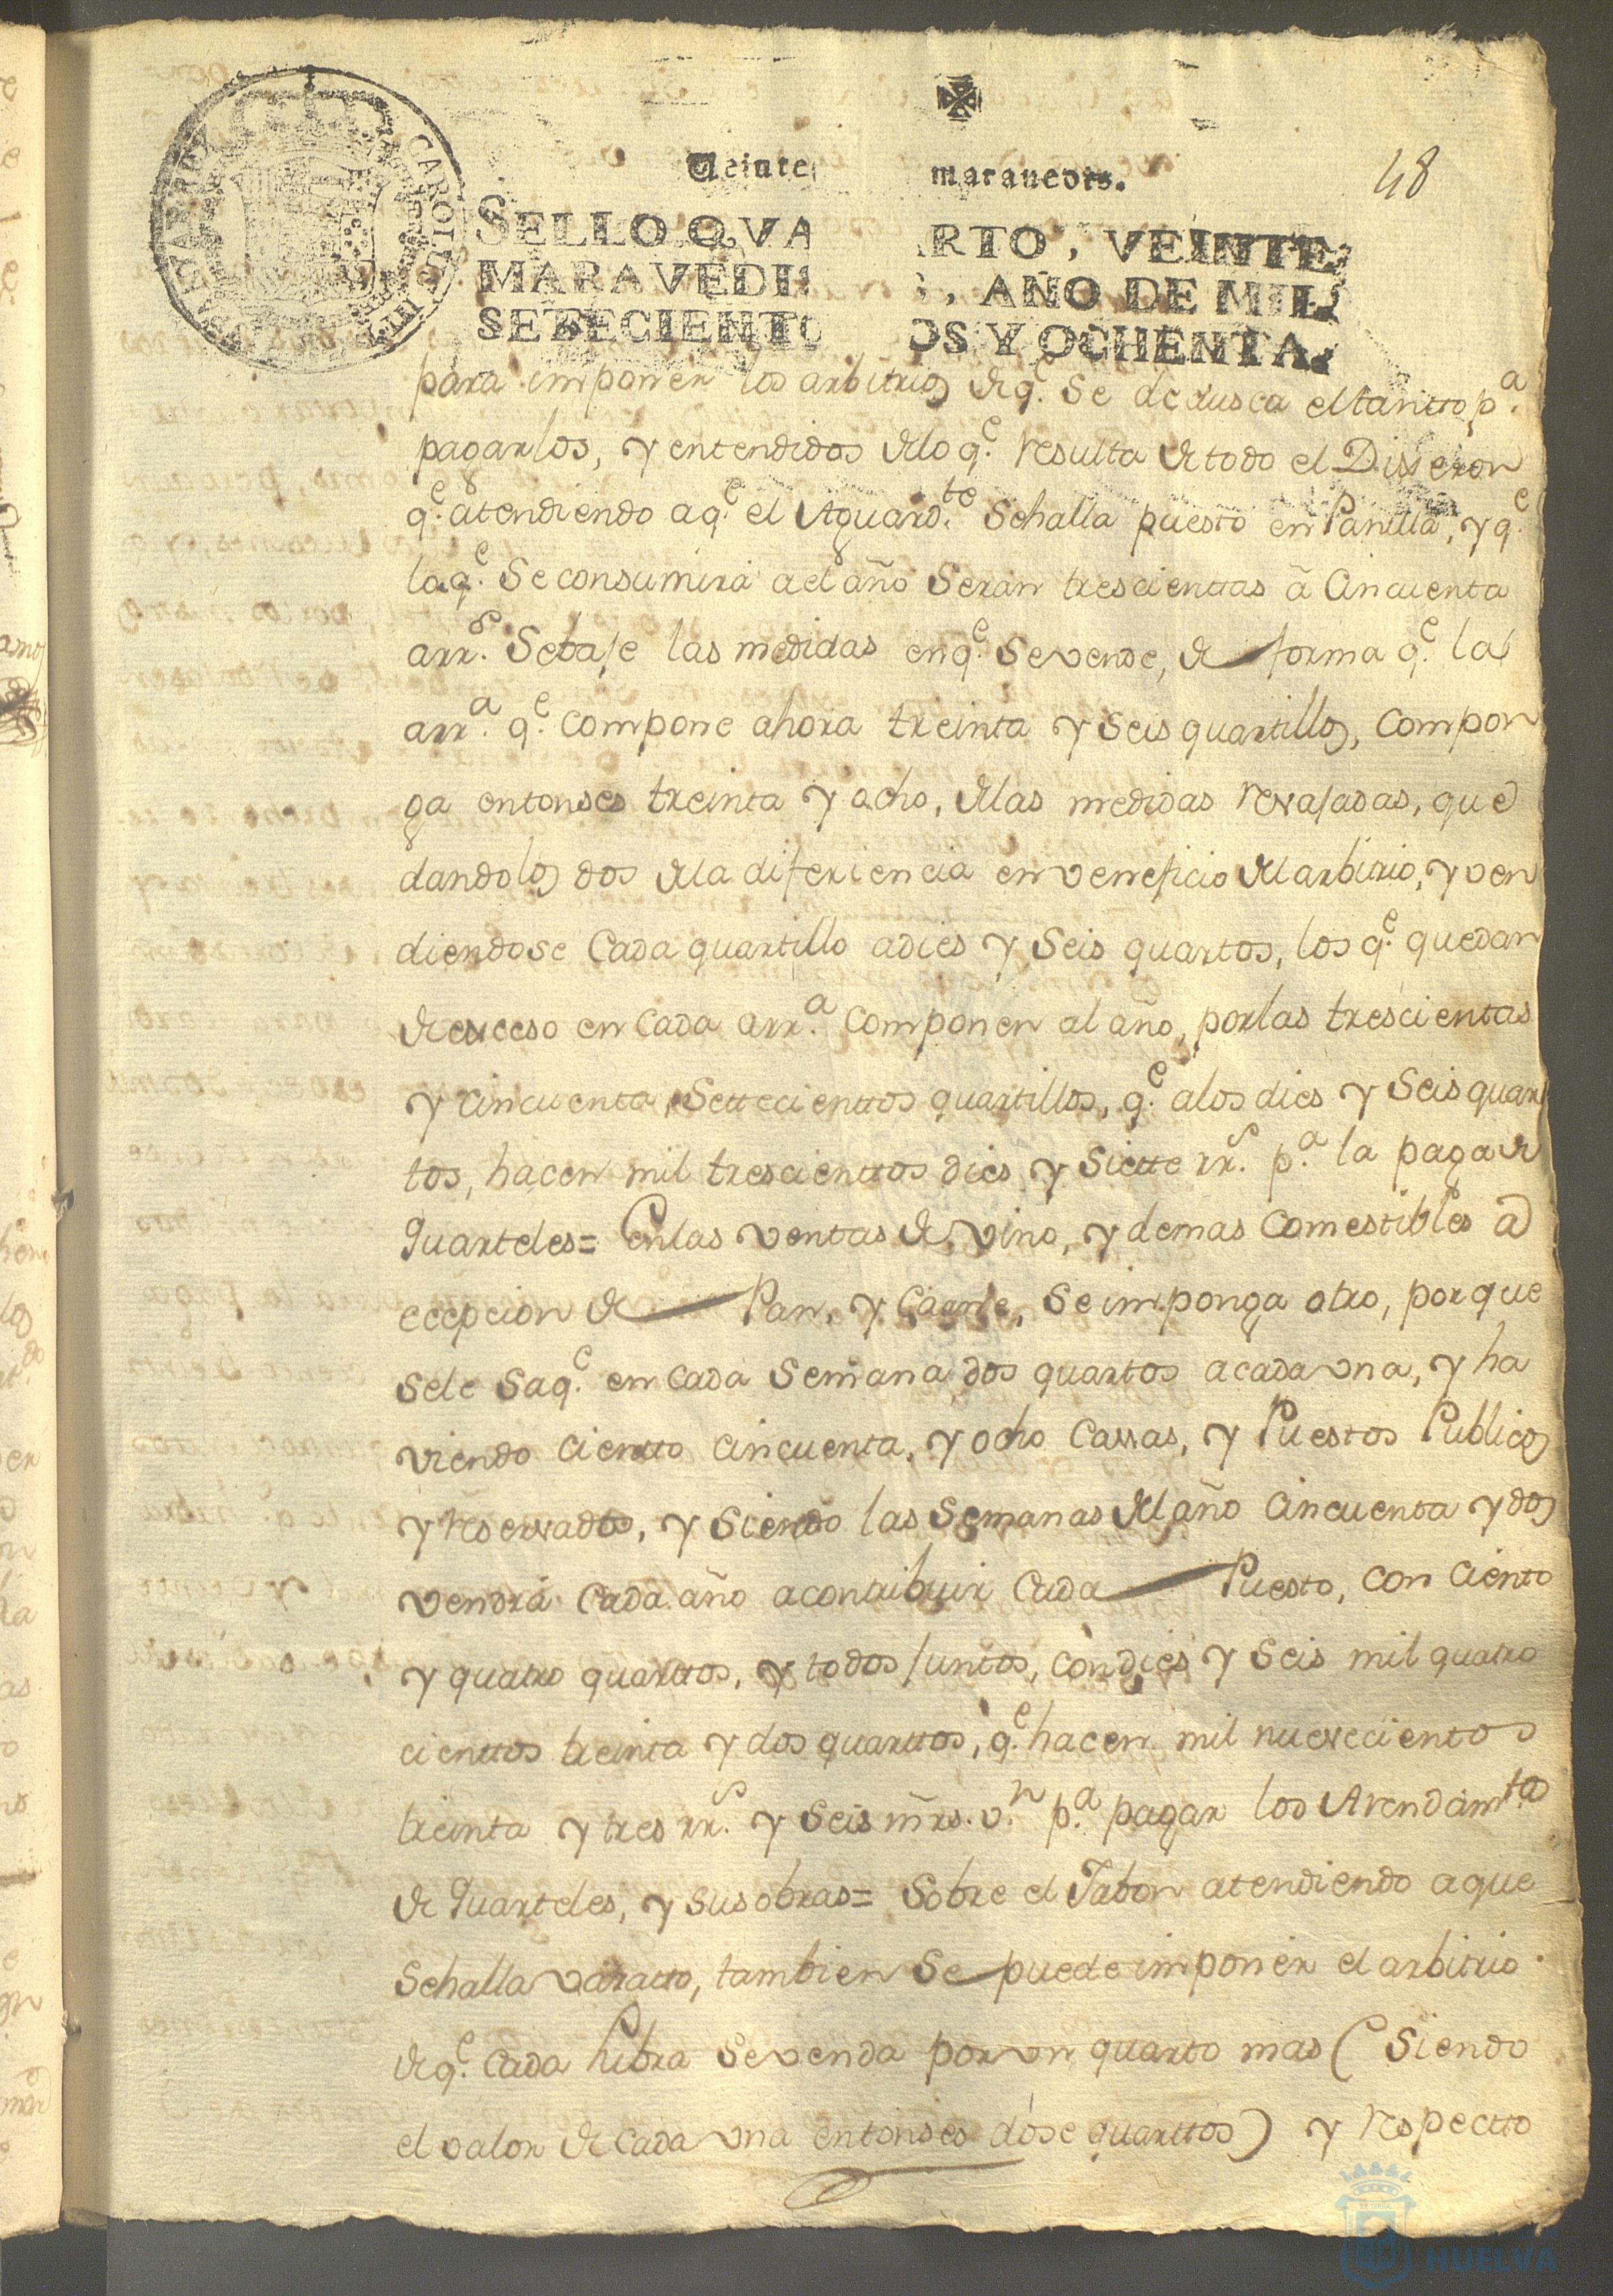 Veinte maravedis.
48
SELLO QVARTO, VEINTE
MARAVEDIS, AÑO DE MIL
SETECIENTOS Y OCHENTA.
CAROLUS III
para imponer los arbitrios de q.e Se dedusca el tantto p.a
pagarlos, y entendidos de lo q.e resulta de todo el Dixeron
q.e atendiendo aq.e el Aguard.te Sehalla puesto en Panilla, y q.e
laq.e Se consumirá ael año Seran trescienttas â Cincuenta
arr.s Sebaje las medidas enq.e Se vende, de forma q.e la
arr.a q.e Compone ahora treinta y Seis quartillos, Compon
ga entonses treinta y ocho, de las medidas revajadas, que
dandolos dos de la diferiencia en veneficio del arbitrio, y ven
diendose Cada quartillo adies y Seis quartos, los q.e quedan
de exceso en Cada arr.a Componen al año, por las trescientas
y cincuenta, Settecienttos quartillos, q.e alos dies y Seis quar
tos, hacen mil trescienttos dies y Siette rr.s p.a la paga de
Quarteles= En las ventas de vino, y demas Comestibles a
ecepcion de Pan, y Carne, Se imponga otro, por que
sele Saq.e en Cada Semana dos quartos acada una, y ha
viendo cientto cincuenta, y ocho Cassas, y Puestos Publicos
y reservados, y Siendo las Semanas del año Cincuenta y dos
vendrá Cada año acontribuir Cada Puesto, con Ciento
y quatro quarttos, y todos juntos, con dies y Seis mil quatro
cienttos treinta y dos quarttos, q.e hacen mil nuevecientos
treinta y tres rr.s y Seis mrs. v.n p.a pagar los Arendam.tos
de Quarteles, y sus obras= Sobre el Jabon atendiendo a que
Sehalla varatto, tambien Se puede imponer el arbitrio
de q.e Cada Libra Se venda por un quarto mas (Siendo
el valor de Cada una entonses dose quarttos) y respectto
HUELVA